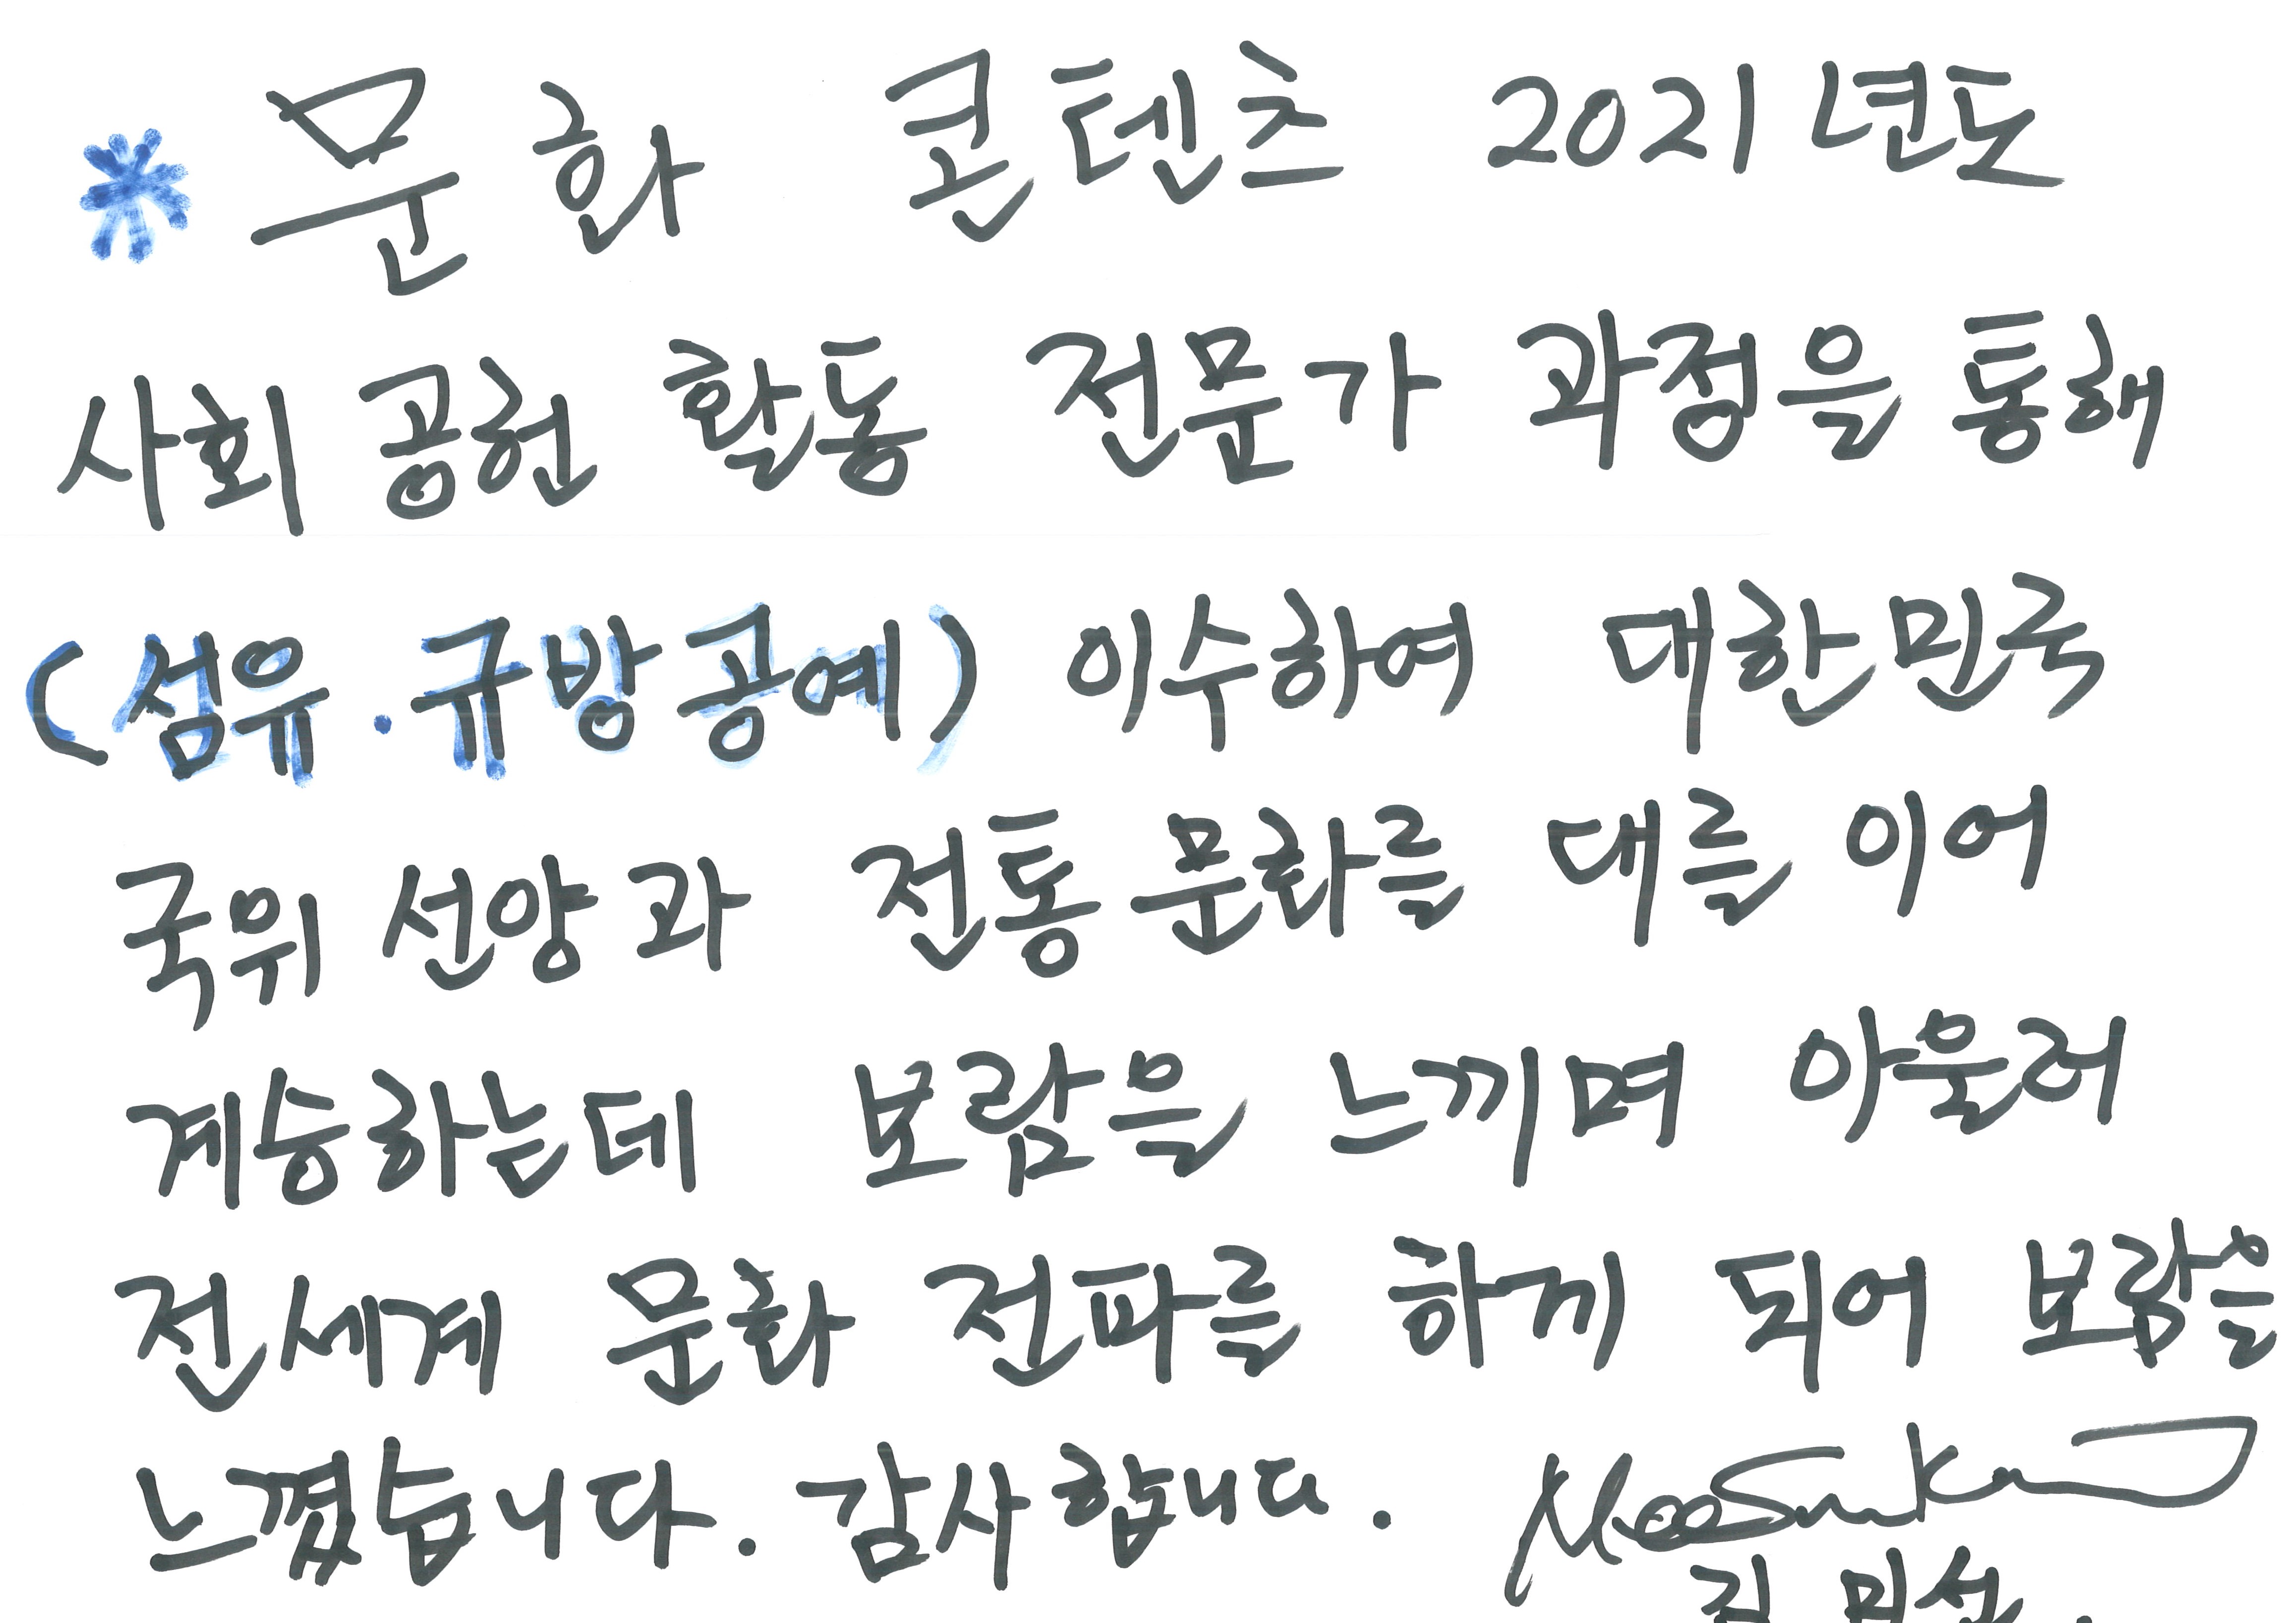 * 문화 콘텐츠 2021년도
사회 공헌 활동 전문가 과정을 통해
(섬유.규방공예) 이수하여 대한민국
국위 선양과 전통문화를 대를 이어
계승하는데 보람을 느끼며 아울러
전세계 문화 전파를 하게 되어 보람을
느꼈습니다. 감사합니다.